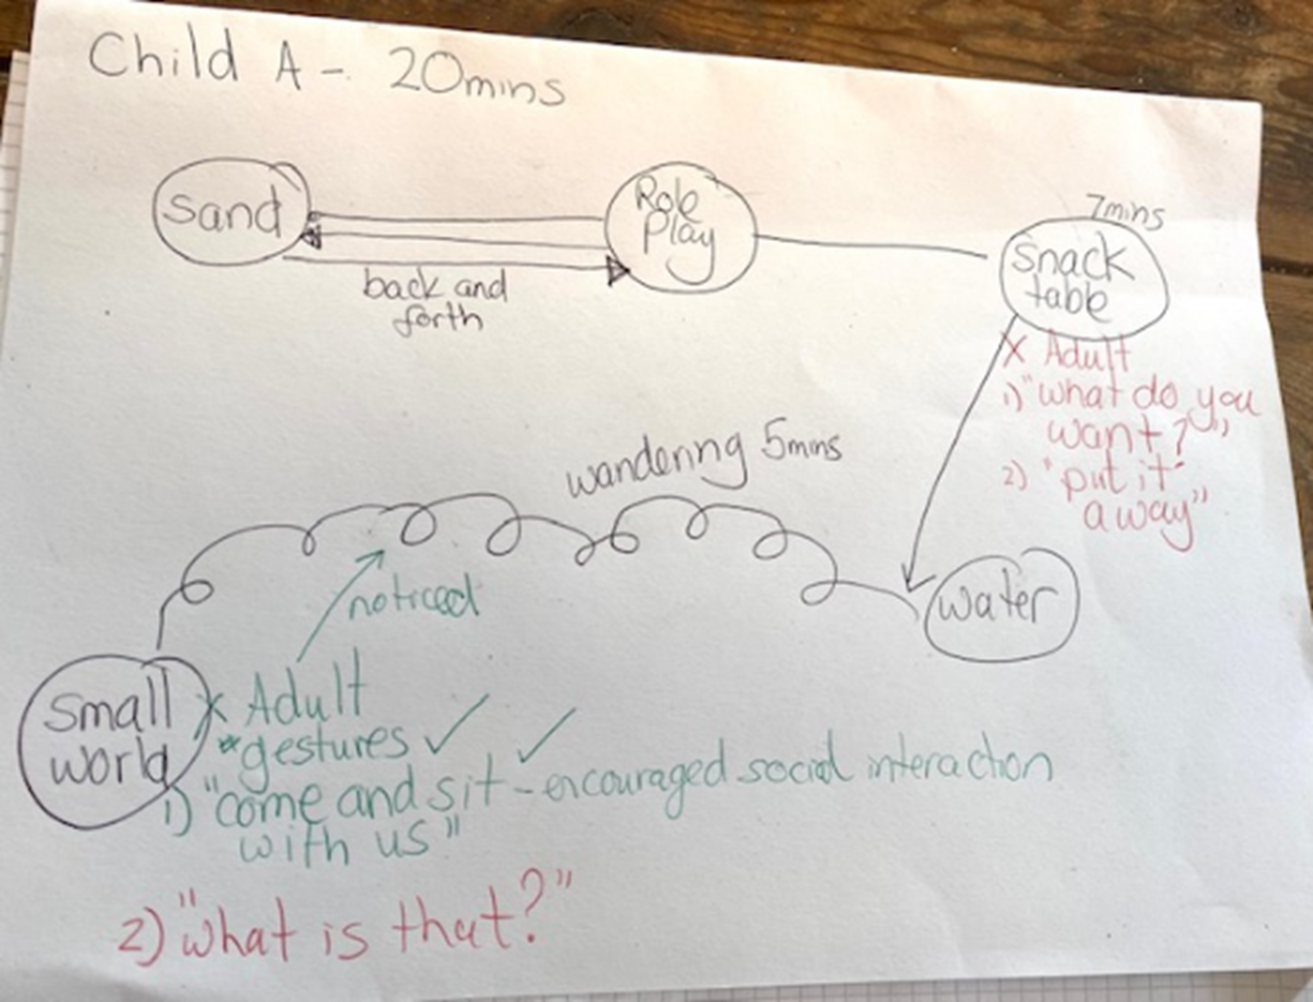 Child A - 20mins
Sand
Role
Play
back and
forth
7mins
Snack
table
X Adult
1) "what do you
want?"
2) "put it
away"
wandering 5mins
noticed
water
Small
world
X Adult
*gestures ✓ ✓
1) "come and sit - encouraged social interaction
with us"
2) "what is that?"